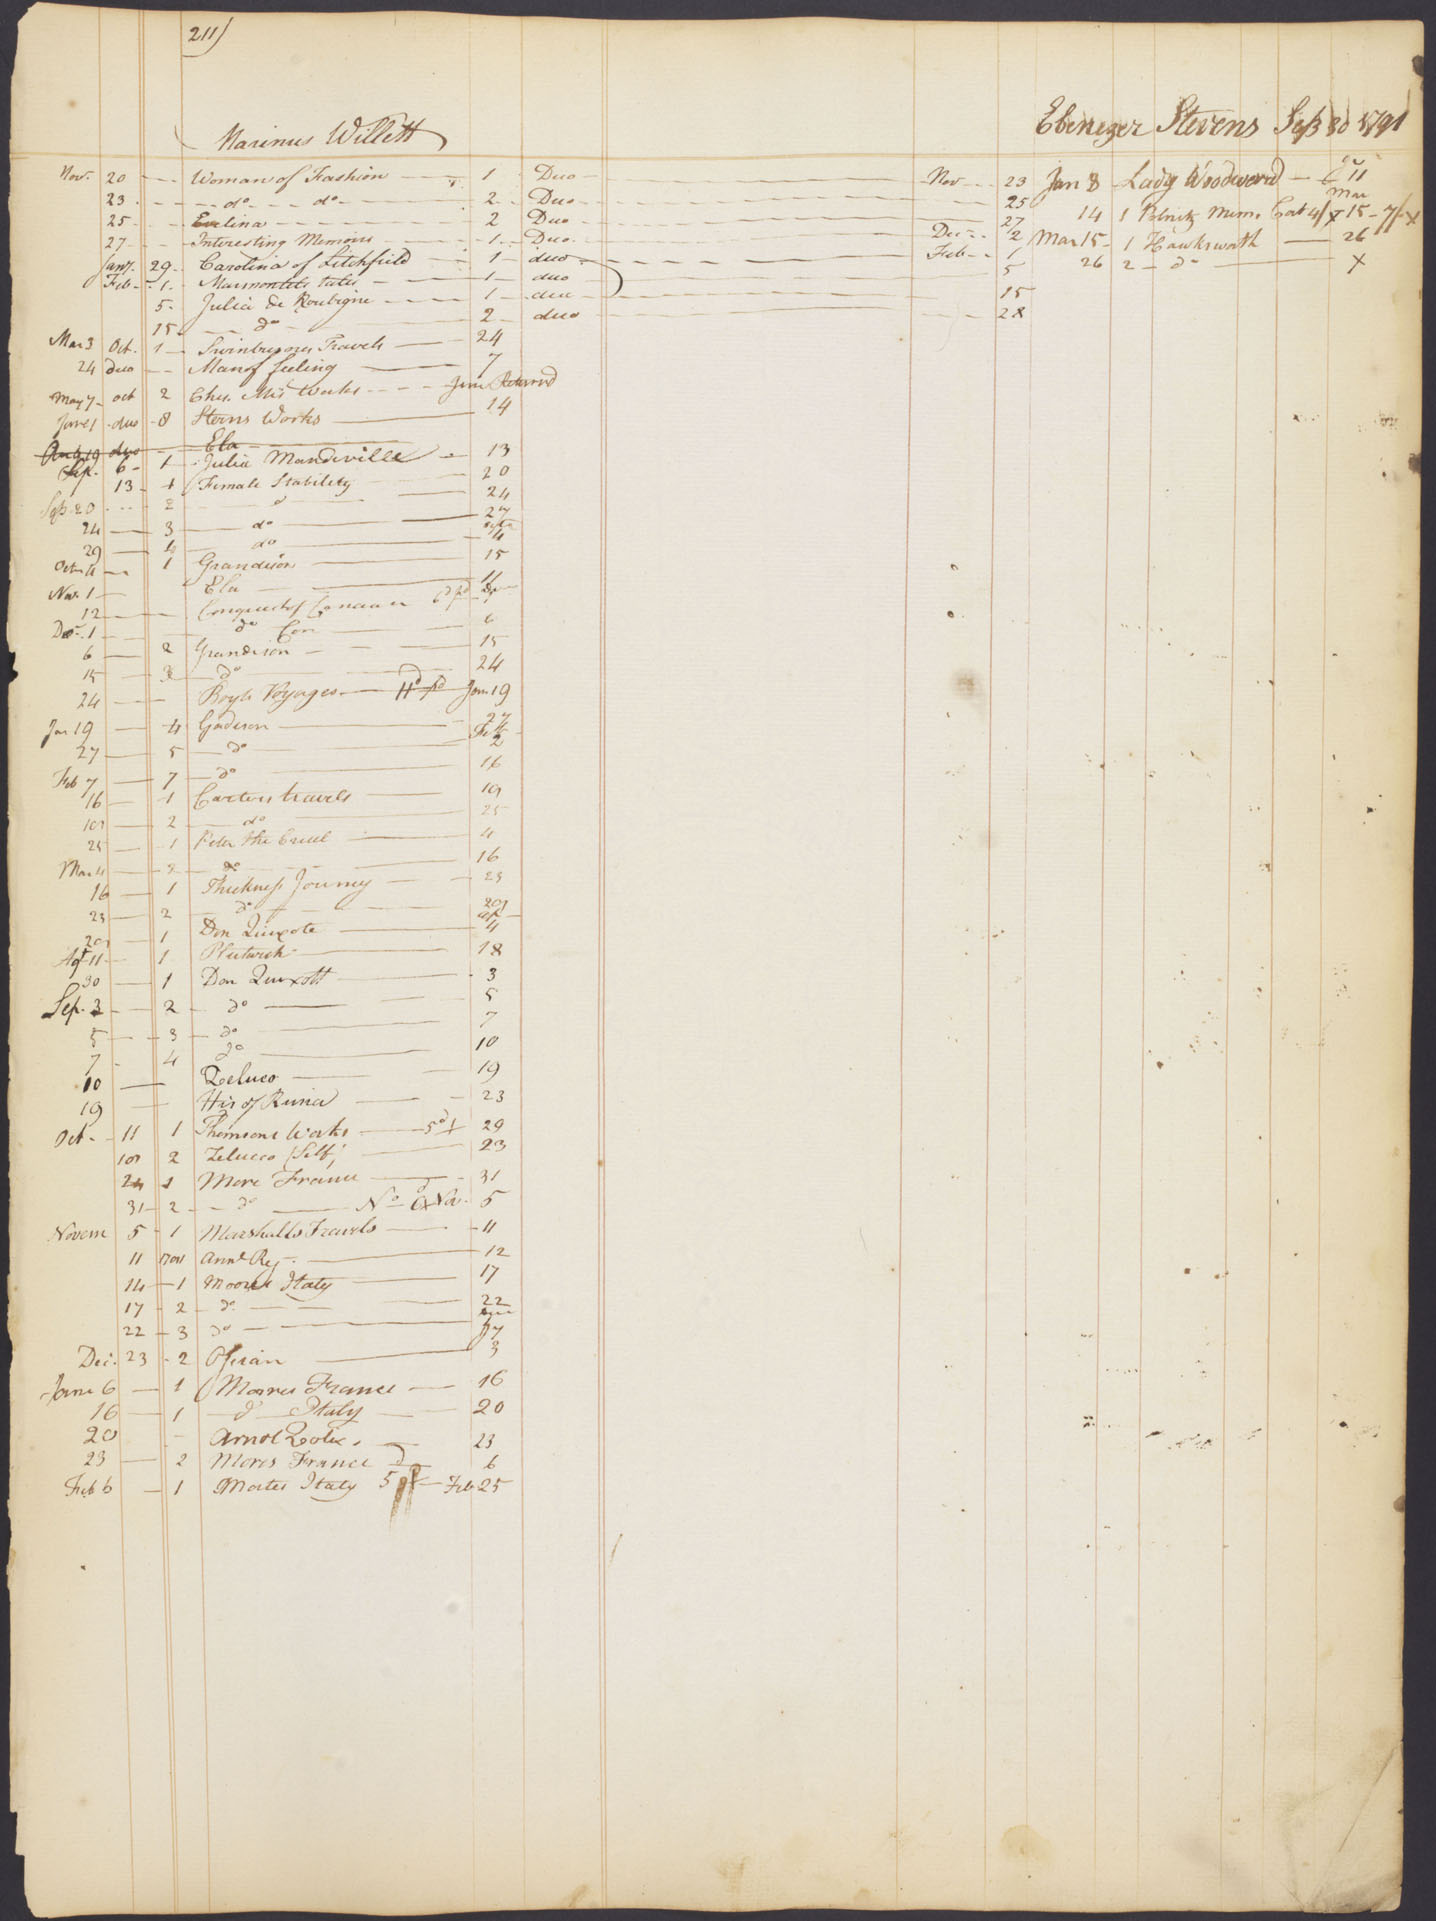 211)
Marinus Willett
Nov. 20 Woman of Fashion 1 Duo Nov 23
23 do do 2 Duo 25
25 Evelina 2 Duo 27
27 Interesting Memoirs 1 Duo Dec 2
Jany. 29 Carolina of Litchfield 1 duo Feb 1
Feb 1 Marmontels tales 1 duo 5
5 Julia de Roubigne 1 duo 15
15 do 2 duo 28
Mar 3 Oct. 1 Swinburnes Travels 24
24 duo Man of feeling 7
May 7 oct 2 Chs. Mis Works June Returned
June 1 duo 8 Sterns Works 14
Aug 19 duo Ela
Sep. 6 1 Julia Mandeville 13
13 1 Female Stability 20
Sept 20 2 do 24
24 3 do 27
29 4 do 4
Octr 4 1 Grandison 15
Nov. 1 Ela 11
12 Conquest of Canaan 6d pd
Decr. 1 do Con 6
6 2 Grandison 15
15 3 do 24
24 Boyls Voyages 11d pd Jan 19
Jan 19 4 Gadison 27
27 5 do Feb 2
Feb 7 7 do 16
16 1 Carters travels 19
19 2 do 25
25 1 Peter the Cruel 4
Mar 4 2 do 16
16 1 Thickness Journey 23
23 2 do 29
29 1 Don Quixote 4
Agt 11 1 Plutarch 18
30 1 Don Quixott 3
Sep. 3 2 do 5
5 3 do 7
7 4 do 10
10 Zeluco 19
19 His of Rusia 23
Oct. 11 1 Thomsons Works 5d 29
19 2 Zelucco (Self) 23
24 1 More France 31
31 2 do No Nov. 5
Novem 5 1 Marshalls Travels 11
11 Annl Reg. 12
14 1 Moores Italy 17
17 2 do 22
22 3 do 27
Dec. 23 2 Ossian 3
Janu 6 1 Moores France 16
16 1 do Italy 20
20 Arnot Zolix. 23
23 2 Mores France 6
Feb 6 1 Mores Italy 5 Feb 25
Ebenezer Stevens Sept 30 1791
Jan 8 Lady Woodword 11
14 1 Polnitz Mem. Cont 4/ Mar 15 7/ x
Mar 15 1 Hawksworth 26
26 2 do x